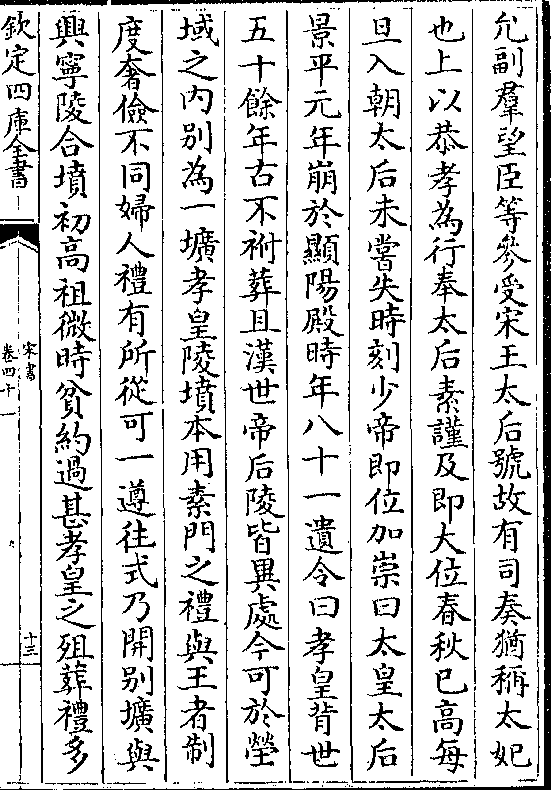 允副羣望臣等參受宋王太后號故有司奏猶稱太妃
也上以恭孝為行奉太后素謹及即大位春秋已高每
旦入朝太后未嘗失時刻少帝即位加崇曰太皇太后
景平元年崩於顯陽殿時年八十一遺令曰孝皇背世
五十餘年古不祔葬且漢世帝后陵皆異處今可於塋
域之內别為一壙孝皇陵墳本用素門之禮與王者制
度奢儉不同婦人禮有所從可一遵往式乃開别壙與
興寧陵合墳初高祖微時貧約過甚孝皇之殂葬禮多
欽定四庫全書
宋書
卷四十一
十三